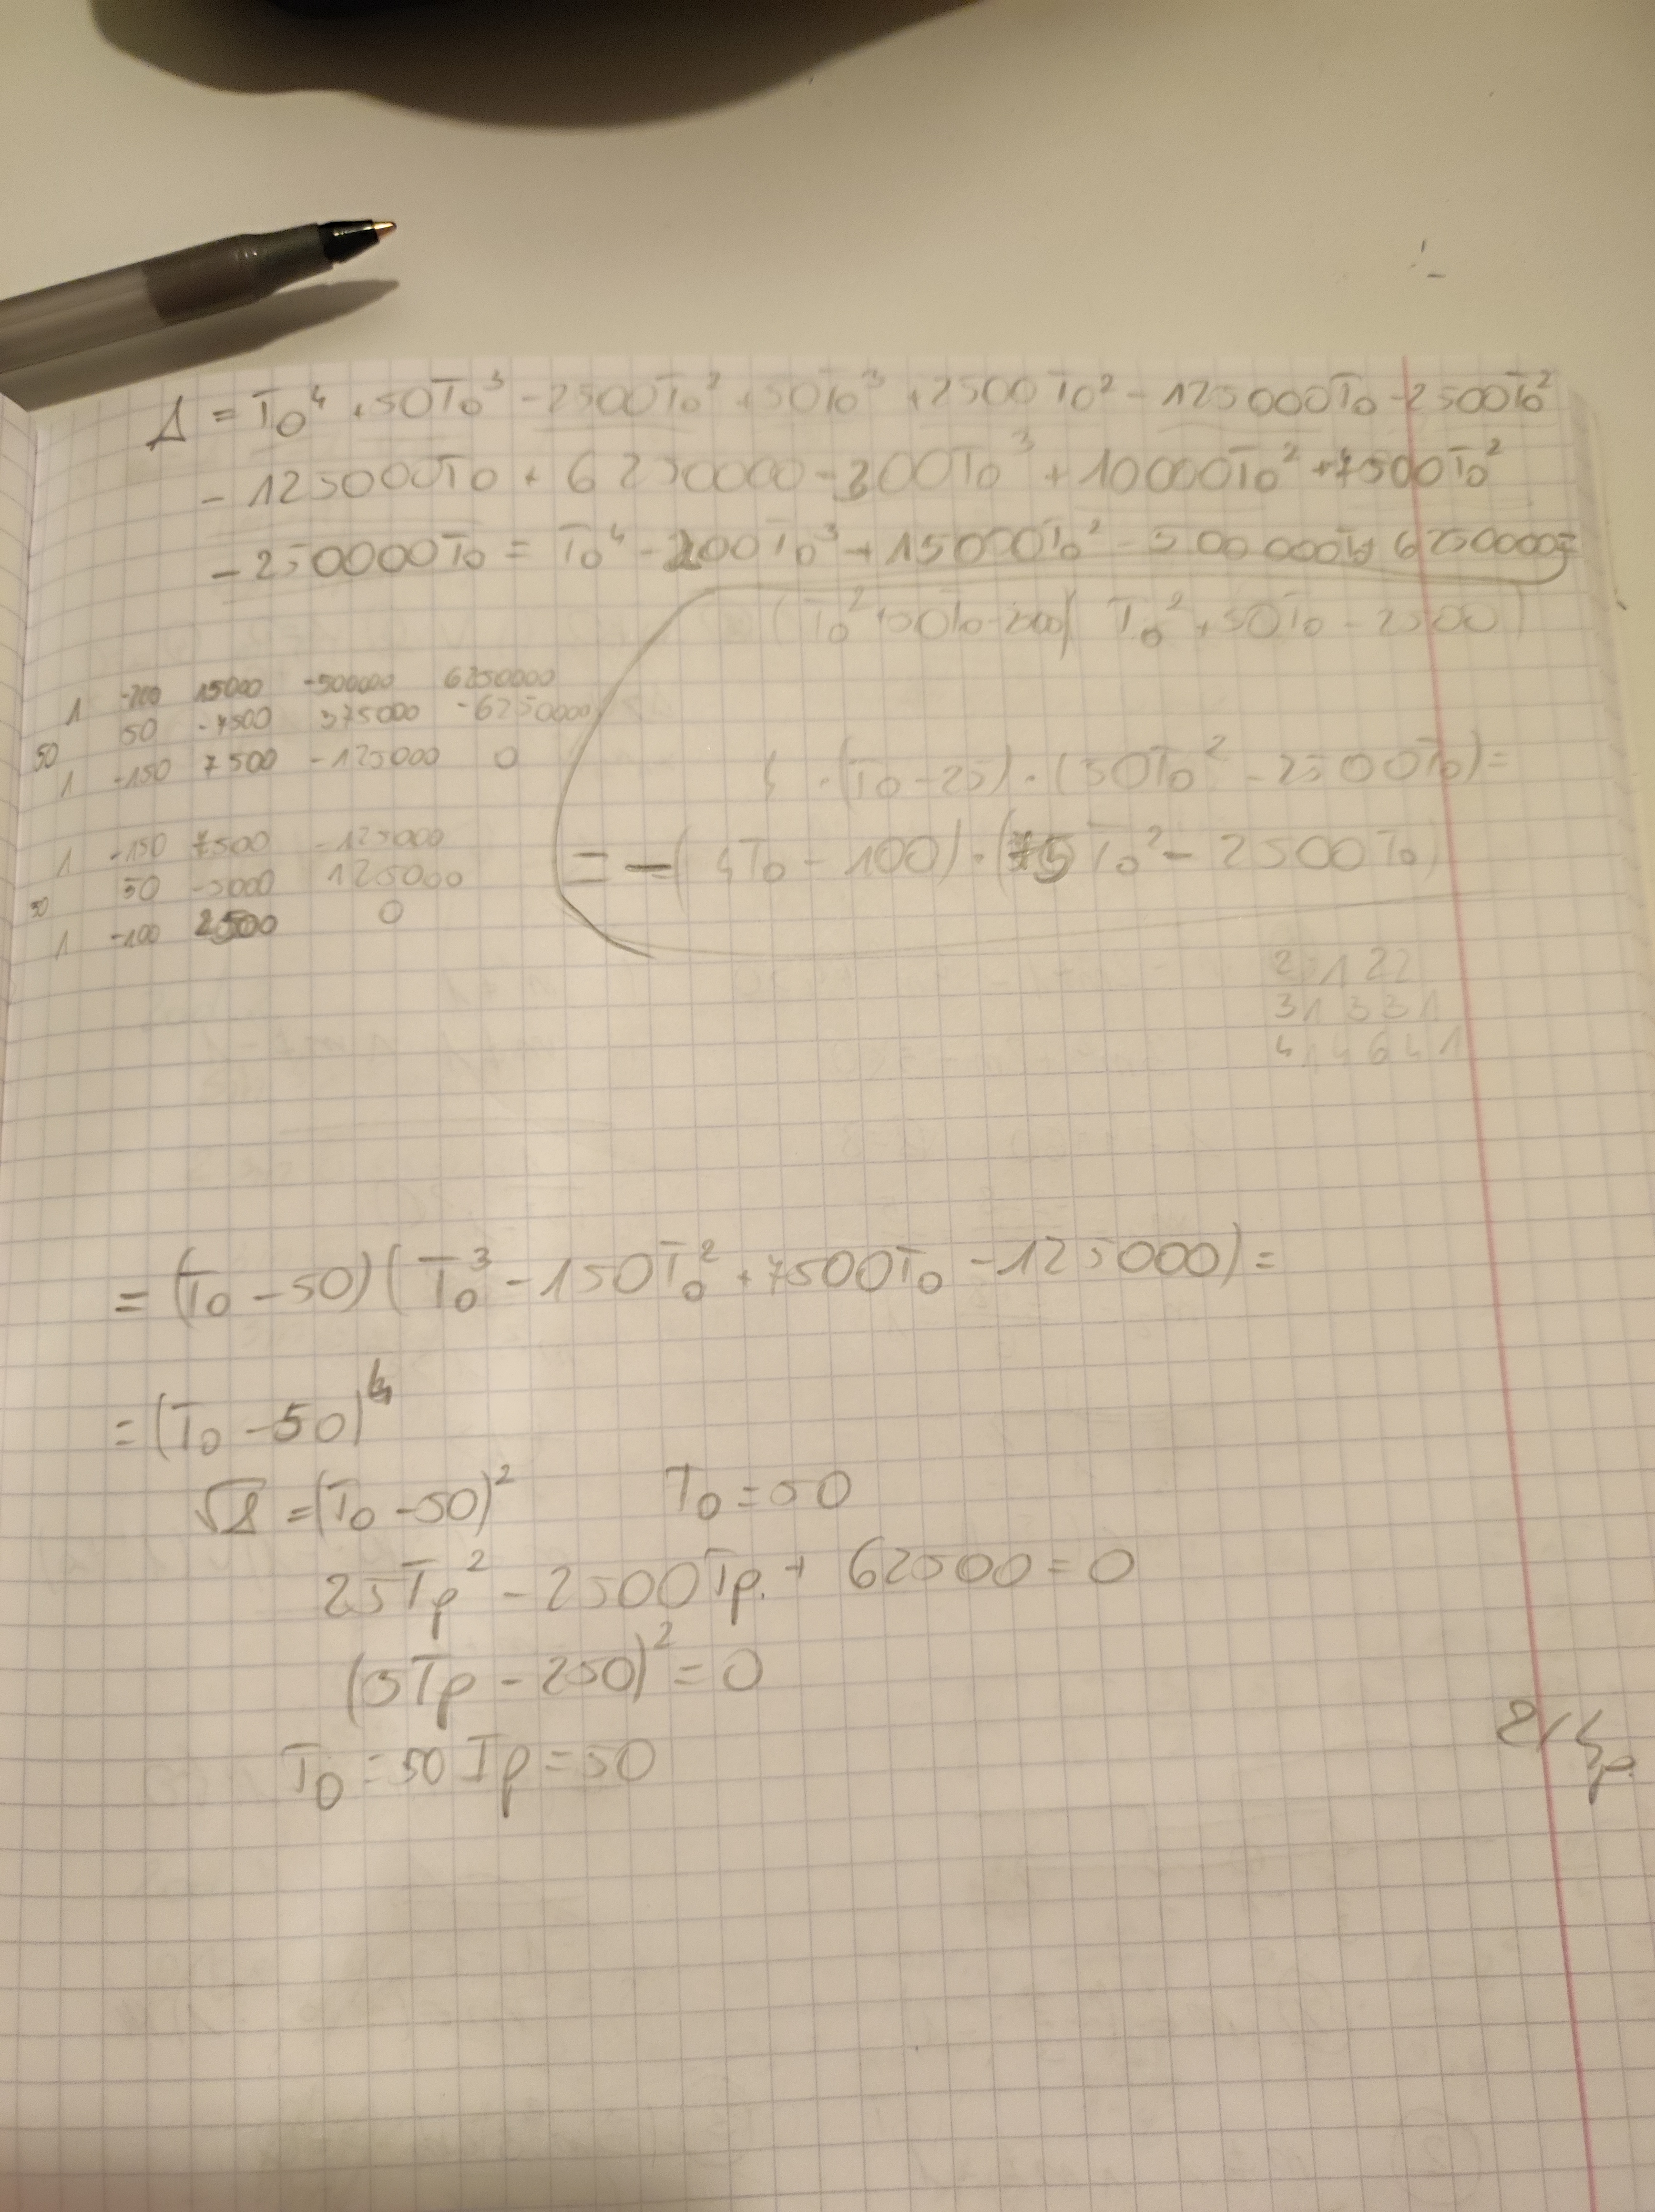 Δ = T₀⁴ + 50T₀³ - 2500T₀² + 50T₀³ + 2500T₀² - 125000T₀ - 2500T₀²
- 125000T₀ + 6250000 - 300T₀³ + 10000T₀² + 7500T₀²
- 250000T₀ = T₀⁴ - 200T₀³ + 15000T₀² - 500000T₀ 6250000 =
(T₀² + 50T₀ - 2500) T₀² + 50T₀ - 2500)
1 -200 15000 -500000 6250000
50 -7500 375000 -6250000
50
1 -150 7500 -125000 0
4 · (T₀ - 25) · (50T₀² - 2500T₀) =
= -(4T₀ - 100) · (75T₀² - 2500T₀)
1 -150 7500 -125000
50 -5000 125000
50
1 -100 2500 0
2 1 2 2
3 1 3 3 1
4 1 4 6 4 1
= (T₀ - 50)(T₀³ - 150T₀² + 7500T₀ - 125000) =
= (T₀ - 50)⁴
√Δ = (T₀ - 50)² T₀ = 50
25Tp² - 2500Tp + 62500 = 0
(5Tp - 250)² = 0
T₀ = 50 Tp = 50